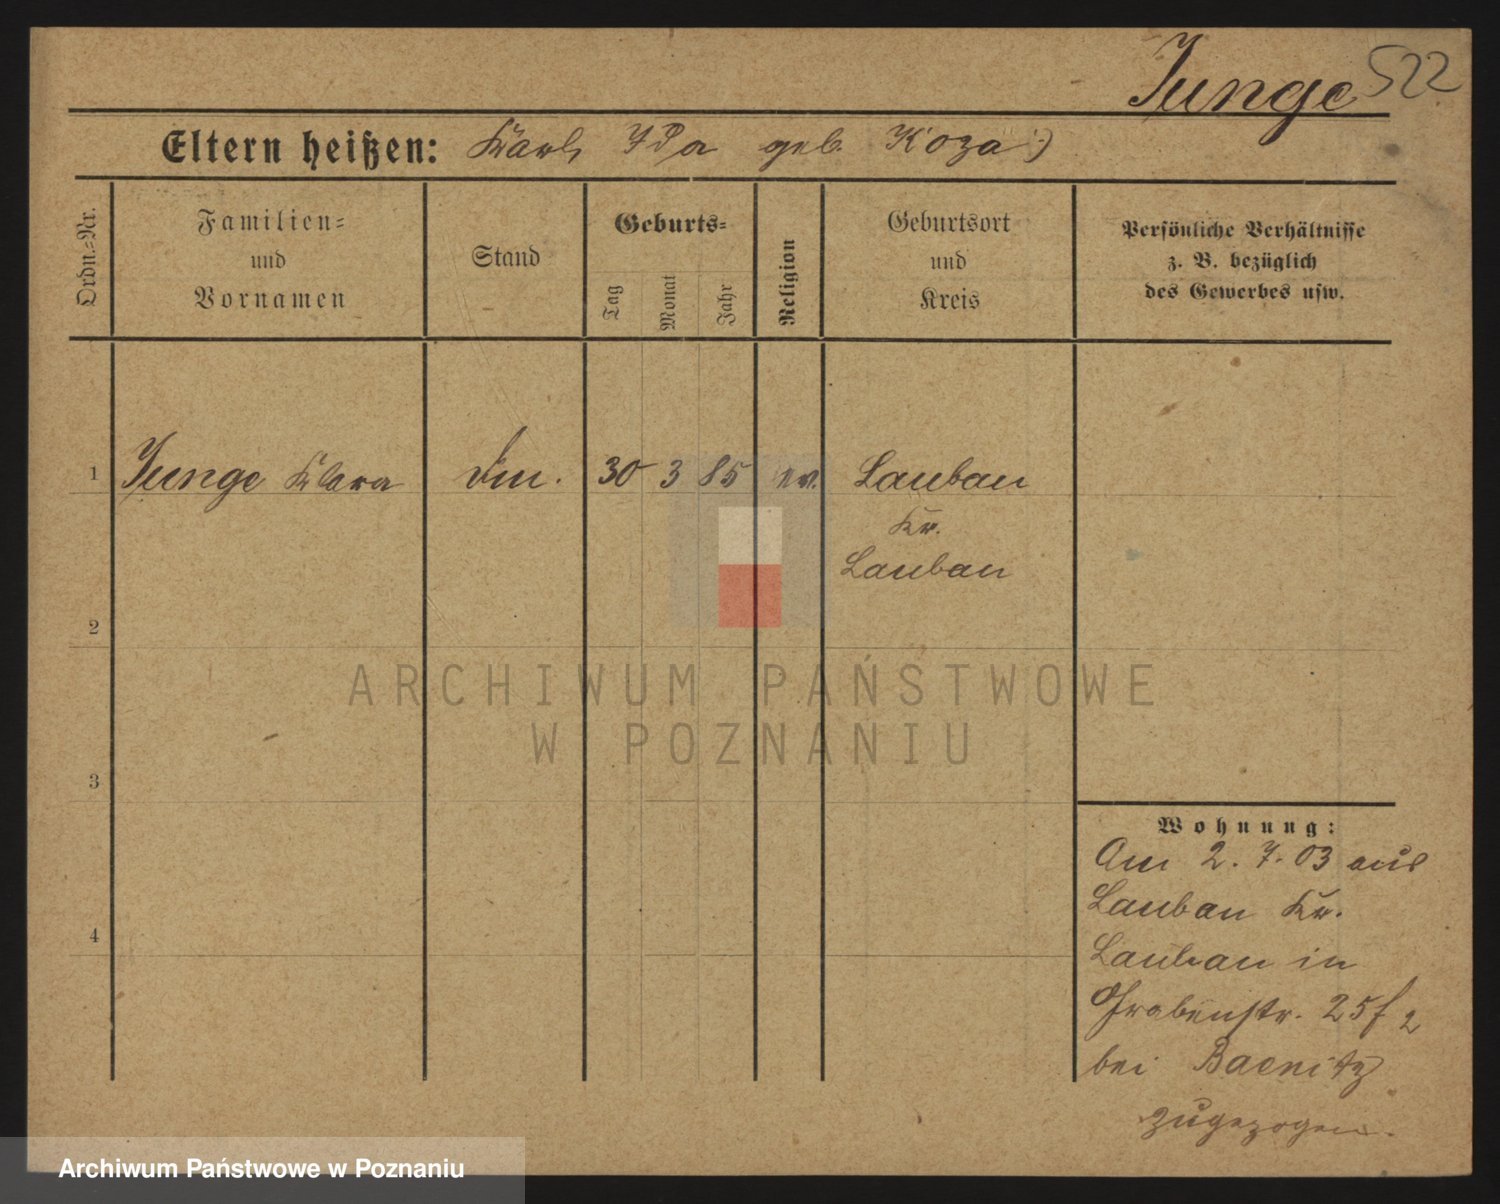 Junge 522
Eltern heißen: Karl, Ida geb. Koza :)
Ordn.=Nr.
Familien=
und
Vornamen
Stand
Geburts=
Tag
Monat
Jahr
Religion
Geburtsort
und
Kreis
Persönliche Verhältnisse
z. B. bezüglich
des Gewerbes usw.
1 Junge Klara 30 3 85 ev. Lauban
Kr.
Lauban
2
3
4
Wohnung:
Am 2. 7. 03 aus
Lauban Kr.
Lauban in
Grabenstr. 25
bei
zugezogen.
ARCHIWUM PAŃSTWOWE
W POZNANIU
Archiwum Państwowe w Poznaniu